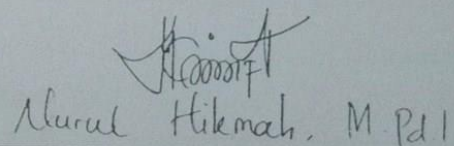 Nurul Hikmah, M.Pd.I